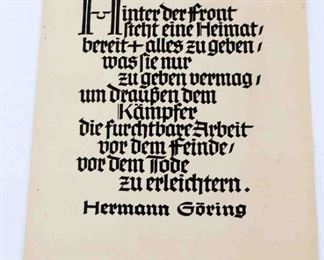 Hinter der Front
steht eine Heimat,
bereit + alles zu geben,
was sie nur
zu geben vermag,
um draußen dem
Kämpfer
die furchtbare Arbeit
vor dem Feinde,
vor dem Tode
zu erleichtern.
Hermann Göring